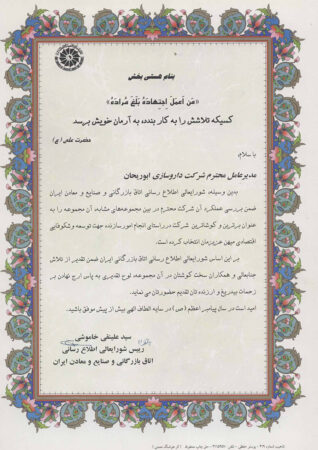 بنام هستی بخش
«مَن اَعمَلَ اِجتِهادَهُ بَلَغَ مُرادَهُ»
کسیکه تلاشش را به کار بندد، به آرمان خویش برسد
حضرت علی (ع)
با سلام،
مدیرعامل محترم شرکت داروسازی ابوریحان
بدین وسیله، شورایعالی اطلاع رسانی اتاق بازرگانی و صنایع و معادن ایران
ضمن بررسی عملکرد آن شرکت محترم در بین مجموعه‌های مشابه، آن مجموعه را به
عنوان برترین و کوشاترین شرکت در راستای انجام امور سازنده جهت توسعه و شکوفایی
اقتصادی میهن عزیزمان انتخاب کرده است.
بر این اساس شورایعالی اطلاع رسانی اتاق بازرگانی ایران ضمن تقدیر از تلاش
جنابعالی و همکاران سخت کوشتان در آن مجموعه، لوح تقدیری به پاس ارج نهادن بر
زحمات بیدریغ و ارزنده تان تقدیم حضورتان می نماید.
امید است در سال پیامبر اعظم (ص) در سایه الطاف الهی بیش از پیش موفق باشید.
سید علینقی خاموشی
رییس شورایعالی اطلاع رسانی
اتاق بازرگانی و صنایع و معادن ایران